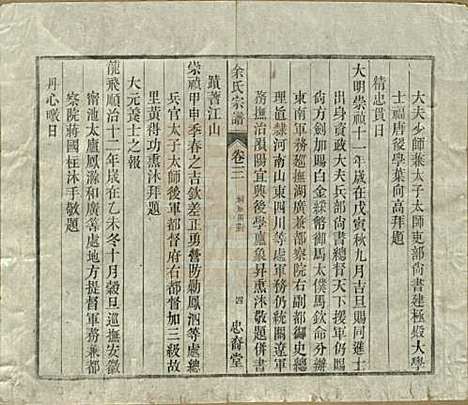 大夫少師兼太子太師吏部尚書建極殿大學
士福唐後學葉向高拜題
精忠貫日
大明崇禎十一年歲在戊寅秋九月吉旦賜同進士
出身資政大夫兵部尚書總督天下援軍仍賜
尙方劍加賜白金綵幣御馬太僕馬欽命分辦
軍務事郧撫湖廣兼都察院右副都御史總
理直隸河南山東四川等處軍務仍統關遼軍
務撫治溳陽宜興後學盧象昇熏沐敬題併書
余氏宗譜
卷三
四
忠裔堂
蹟著江山
崇禎甲申季春之吉欽差正勇營防勦鳳泗等處總
兵官太子太師後軍都督府右都督加三級故
里黃得功熏沐拜題
大元養士之報
龍飛順治十二年歲在乙未冬十月穀旦巡撫安徽
甯池太廬鳳滁和廣等處地方提督軍務兼都
察院蔣國柱沐手敬題
丹心暾日